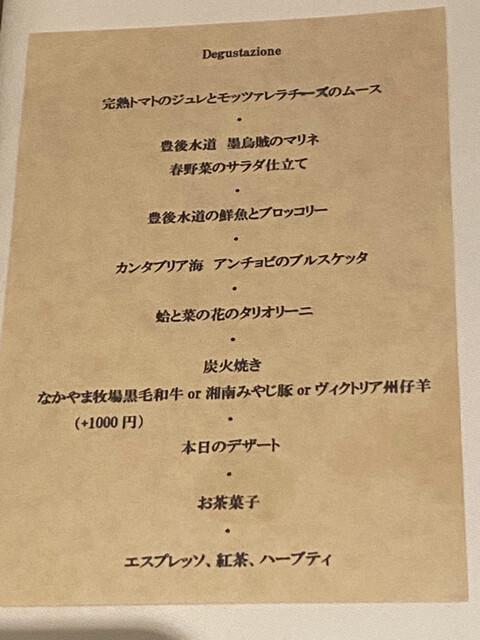 Degustazione
完熟トマトのジュレとモッツァレラチーズのムース
・
豊後水道 墨烏賊のマリネ
春野菜のサラダ仕立て
・
豊後水道の鮮魚とブロッコリー
・
カンタブリア海 アンチョビのブルスケッタ
・
蛤と菜の花のタリオリーニ
・
炭火焼き
なかやま牧場黒毛和牛 or 湘南みやじ豚 or ヴィクトリア州仔羊
(+1000 円)
・
本日のデザート
・
お茶菓子
・
エスプレッソ、紅茶、ハーブティ